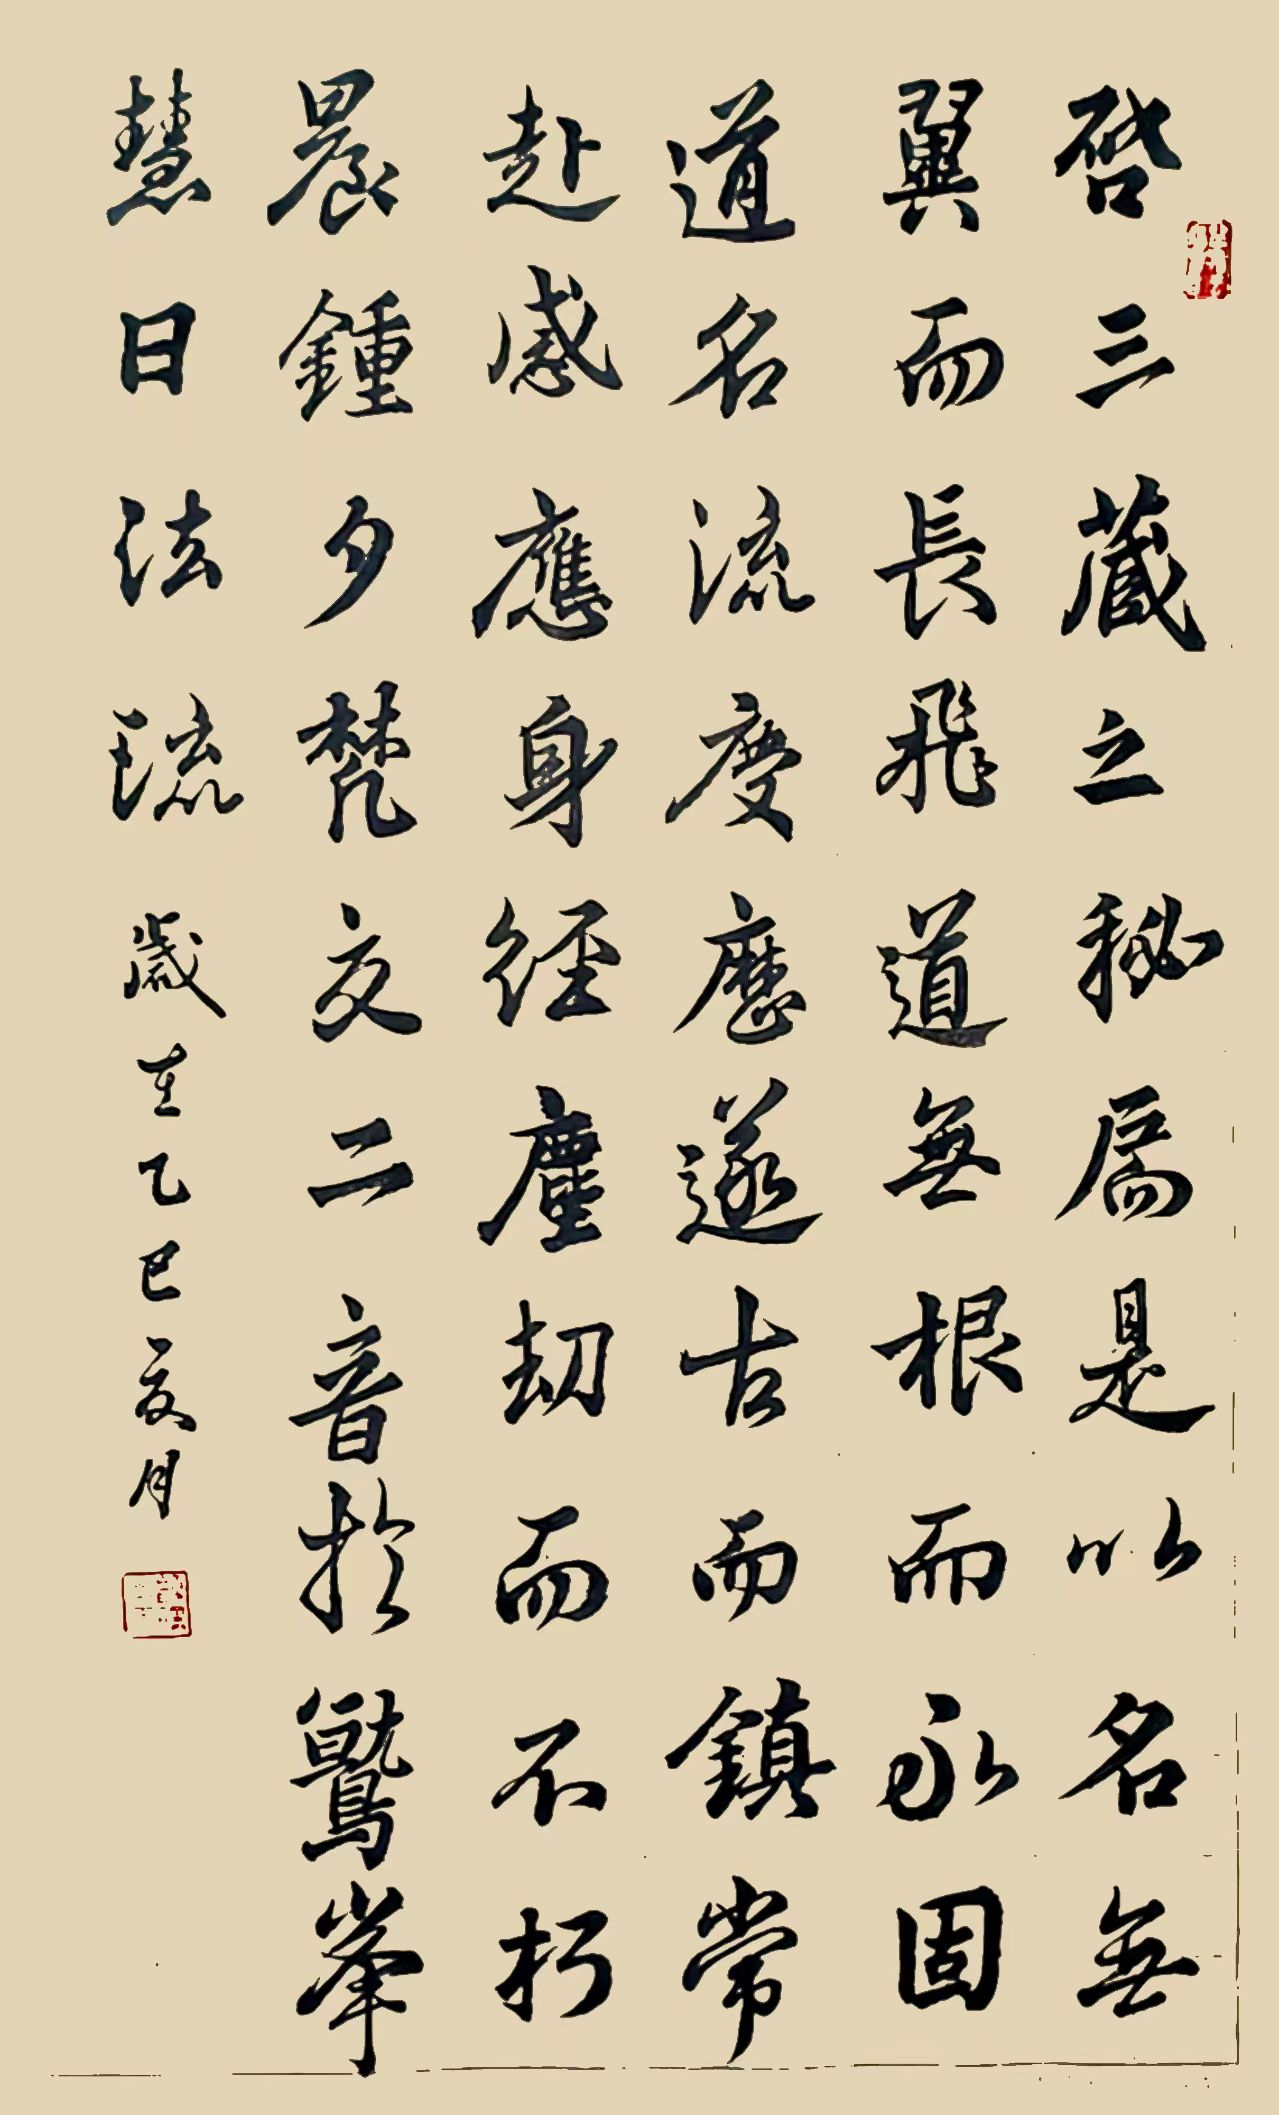 啓三藏之秘扃是以名無
翼而長飛道無根而永固
道名流慶歷遂古而鎮常
赴感應身經塵劫而不朽
晨鍾夕梵交二音於鷲峯
慧日法流
歲在乙巳夏月